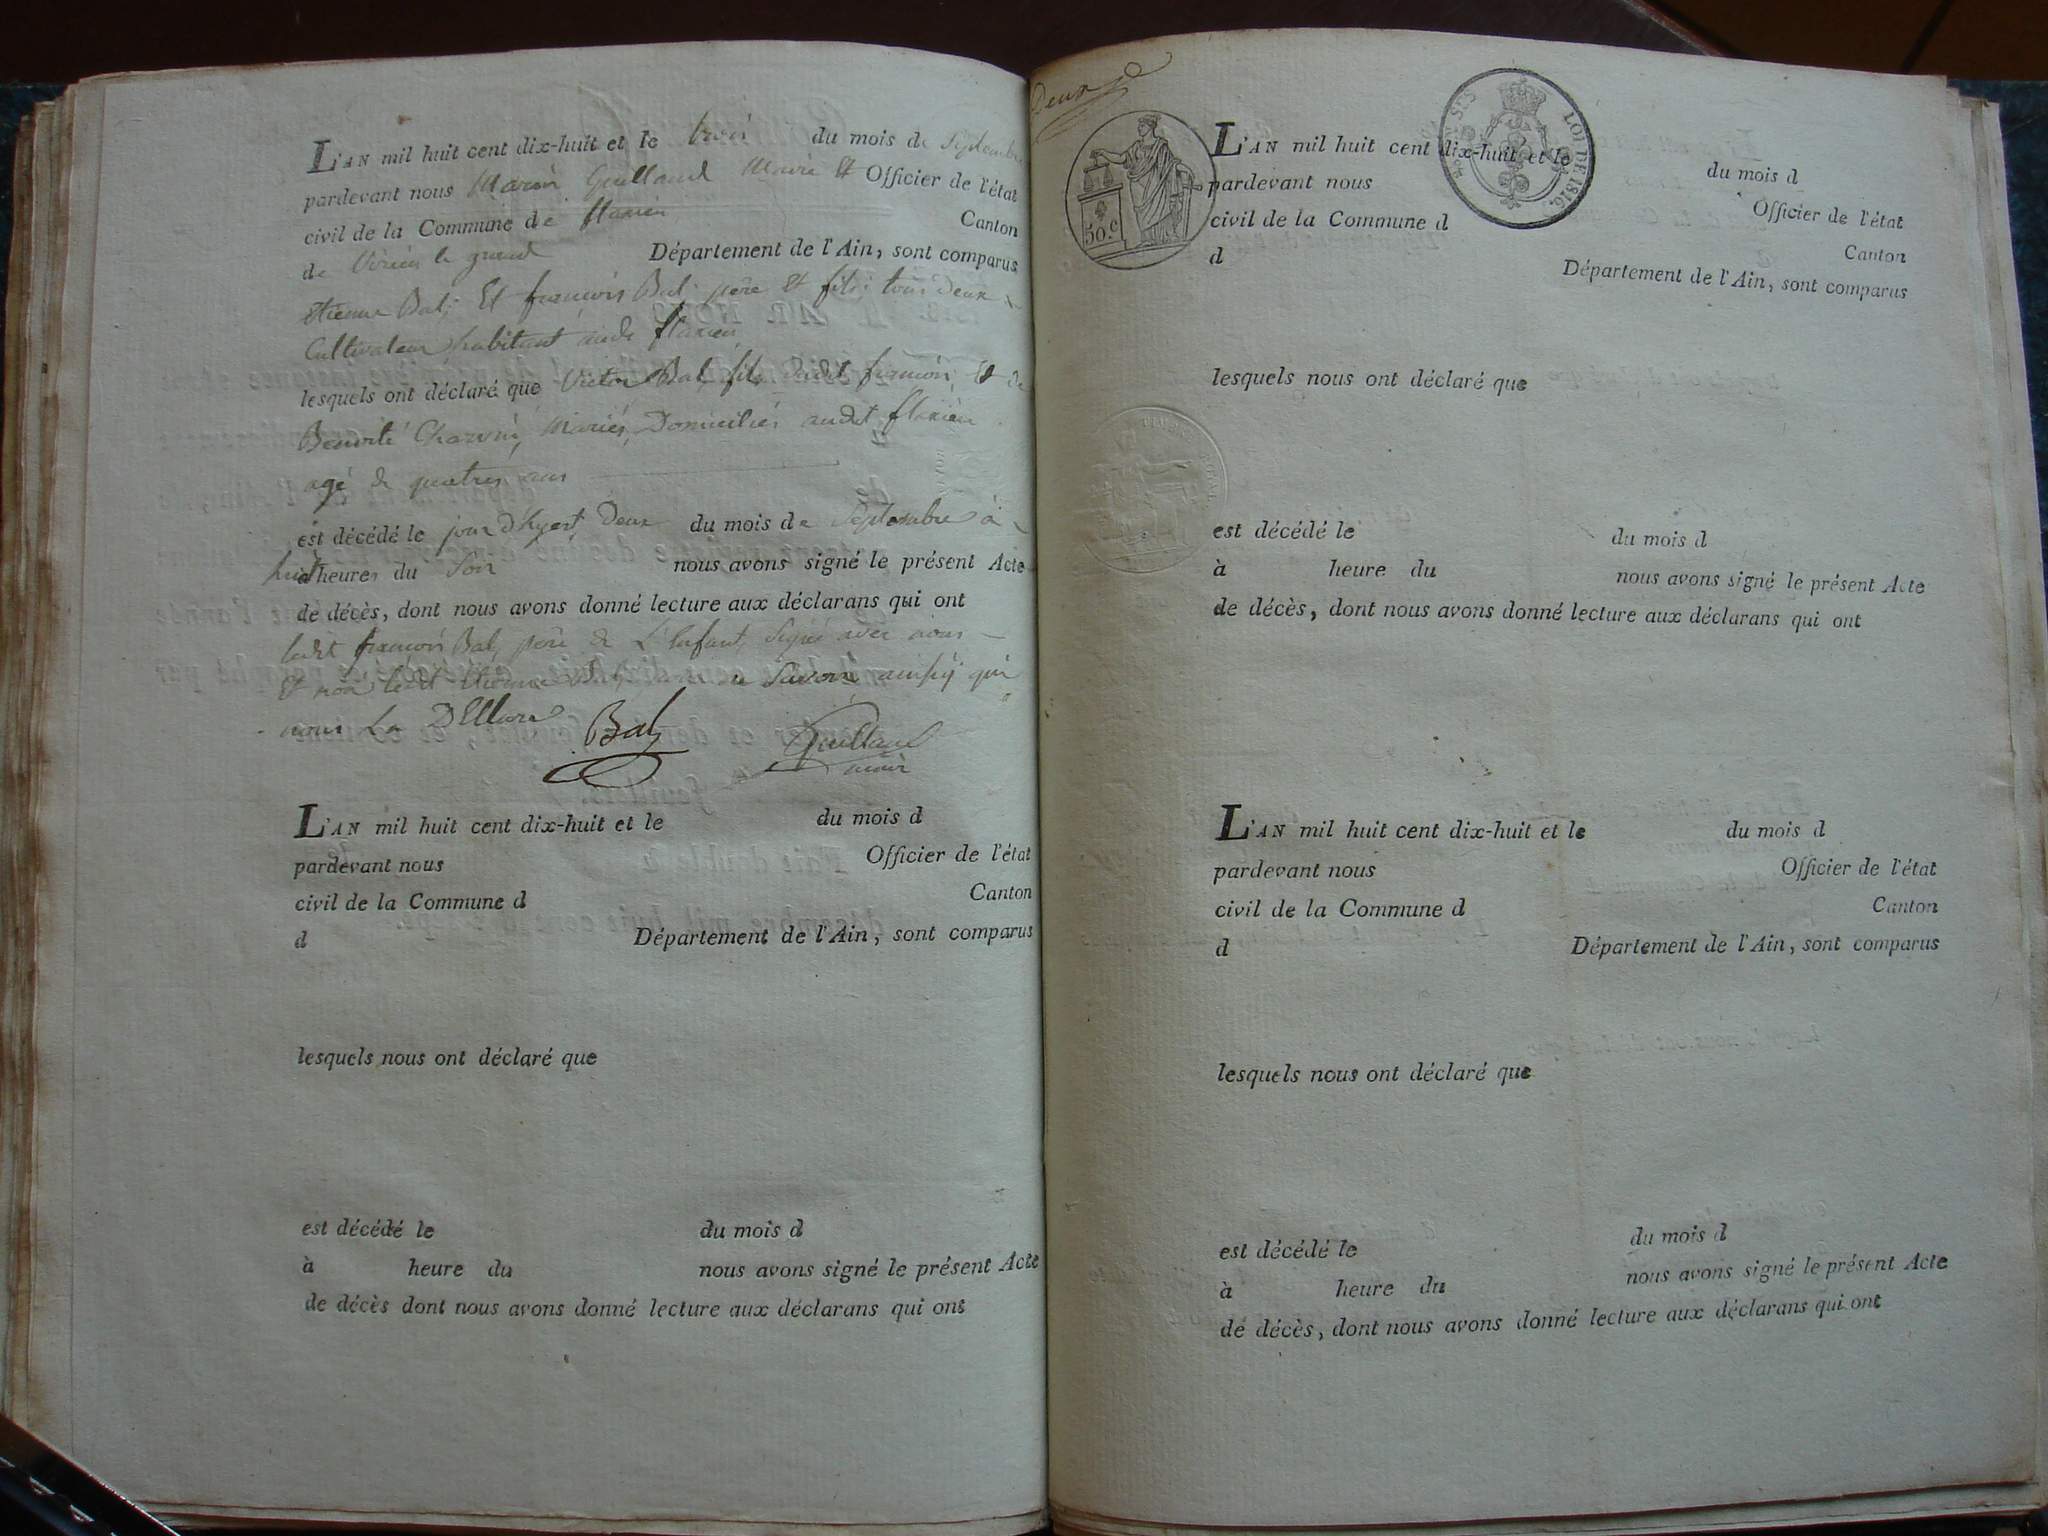 L'AN mil huit cent dix-huit et le trois du mois de Septembre
pardevant nous Marin Guilland Maire Et Officier de l'état
civil de la Commune de flaxieu Canton
de Virieu le grand Département de l'Ain, sont comparus
Etienne Bal, Et françois Bal père Et fils tous deux
Cultivateur habitant audt flaxieu
lesquels ont déclaré que Victor Bal fils dudit françois Et de
Benoite Charvin, Mariés, Domiciliés audit flaxieu
agé de quatres ans
est décédé le jour d'hyert Deux du mois de Septembre à
huit heures du Soir nous avons signé le présent Acte
de décès, dont nous avons donné lecture aux déclarans qui ont
ledit françois Bal, père de L'Enfant, Signé avec nous
Et non ledit Etienne Bal, savoir ainsÿ qui
nous La DEllaré Bal Guilland
maire
L'AN mil huit cent dix-huit et le du mois d
pardevant nous Officier de l'état
civil de la Commune d Canton
d Département de l'Ain, sont comparus
lesquels nous ont déclaré que
est décédé le du mois d
à heure du nous avons signé le présent Acte
de décès dont nous avons donné lecture aux déclarans qui ont
Deux
50.c
SES
LOI DE 1816.
L'AN mil huit cent dix-huit et le du mois d
pardevant nous Officier de l'état
civil de la Commune d Canton
d Département de l'Ain, sont comparus
lesquels nous ont déclaré que
est décédé le du mois d
à heure du nous avons signé le présent Acte
de décès, dont nous avons donné lecture aux déclarans qui ont
L'AN mil huit cent dix-huit et le du mois d
pardevant nous Officier de l'état
civil de la Commune d Canton
d Département de l'Ain, sont comparus
lesquels nous ont déclaré que
est décédé le du mois d
à heure du nous avons signé le présent Acte
de décès, dont nous avons donné lecture aux déclarans qui ont